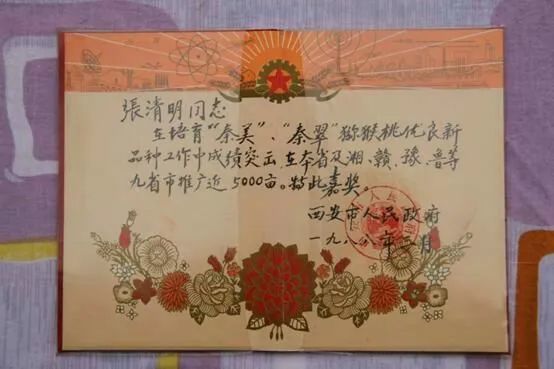 張清明同志
在培育“秦美”、“秦翠”猕猴桃优良新
品种工作中成绩突出,在本省及湘、赣、豫、鲁等
九省市推广近5000亩。特此嘉奖。
西安市人民政府
一九八八年 月